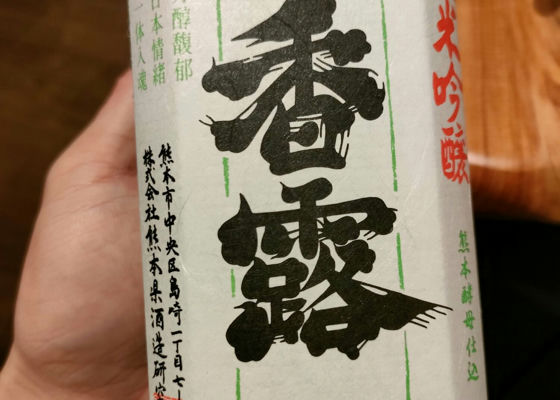 米吟醸
熊本酵母仕込
香露
醇馥郁
日本情緒
一体入魂
熊本市中央区島崎一丁目七
株式会社熊本県酒造研究